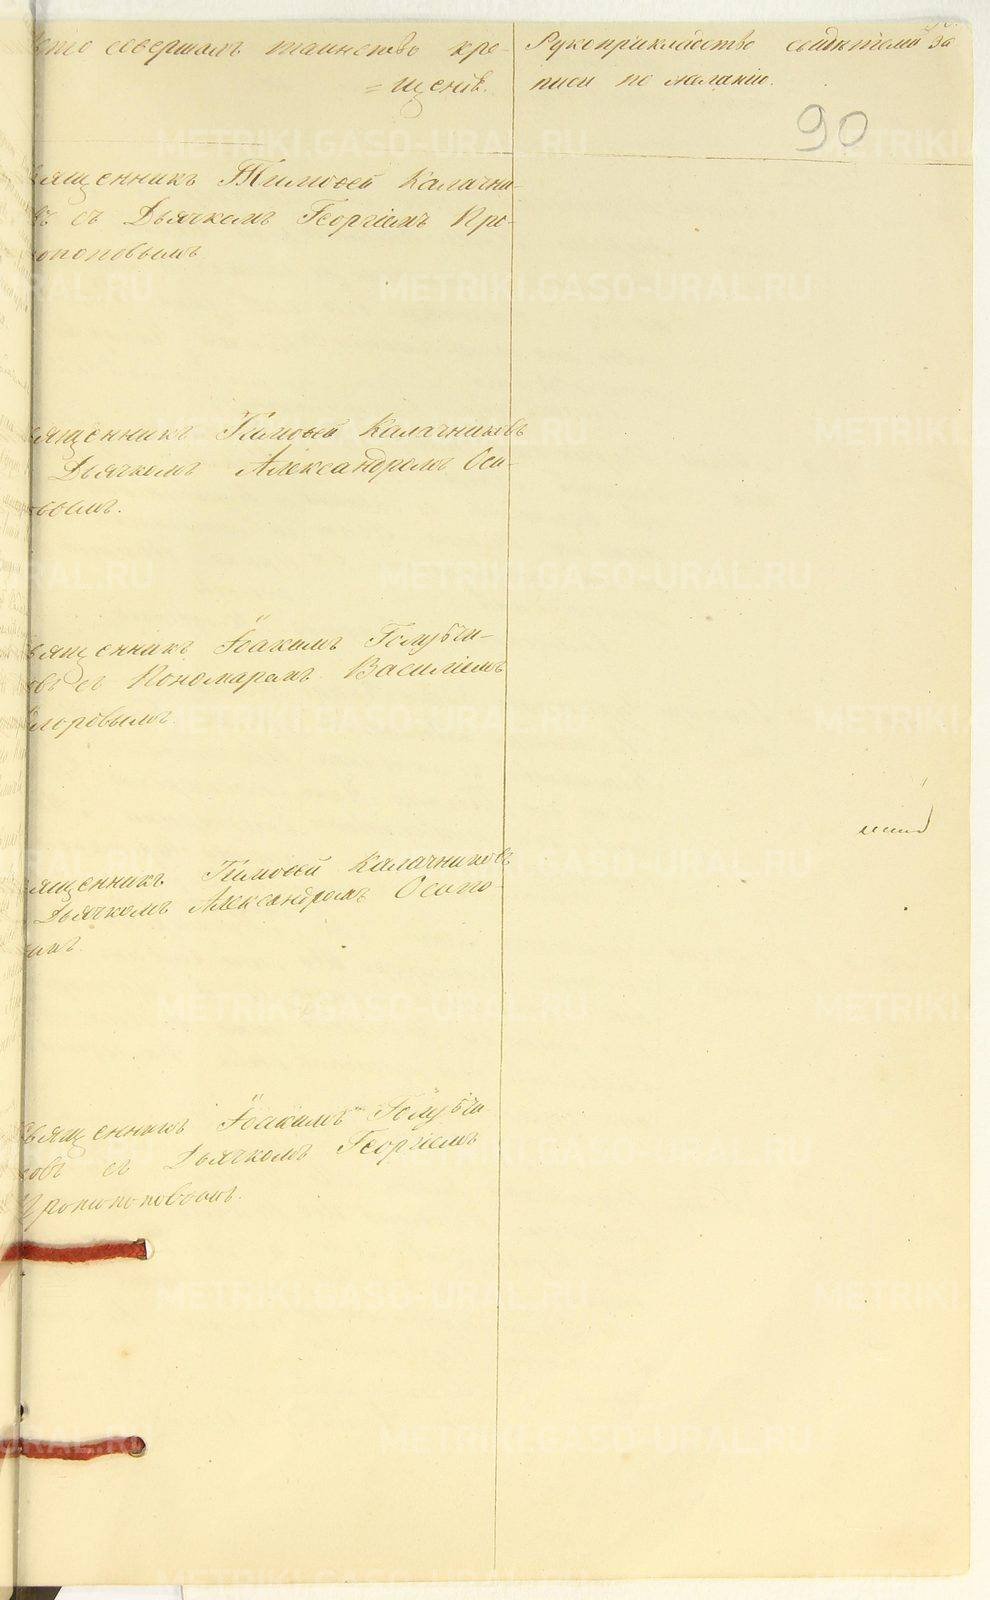 Кто совершалъ таинство кре-
= щенія.
Рукоприкладство свидѣтелей за
писи по желанію.
90
Священникъ Тимоѳей Калачни-
въ съ Дьячкомъ Георгіемъ Про-
топоповымъ
Священникъ Тимоѳей Калачниковъ
Дьячкомъ Александромъ Оси-
повымъ.
Священникъ Іоакимъ Голубчи-
ковъ съ Пономаремъ Василіемъ
Флоровымъ.
Священникъ Тимоѳей Калачниковъ
Дьячкомъ Александромъ Осипо-
вымъ.
Священникъ Іоакимъ Голубчи
ковъ съ Дьячкомъ Георгіемъ
Протопоповымъ.
METRIKI.GASO-URAL.RU